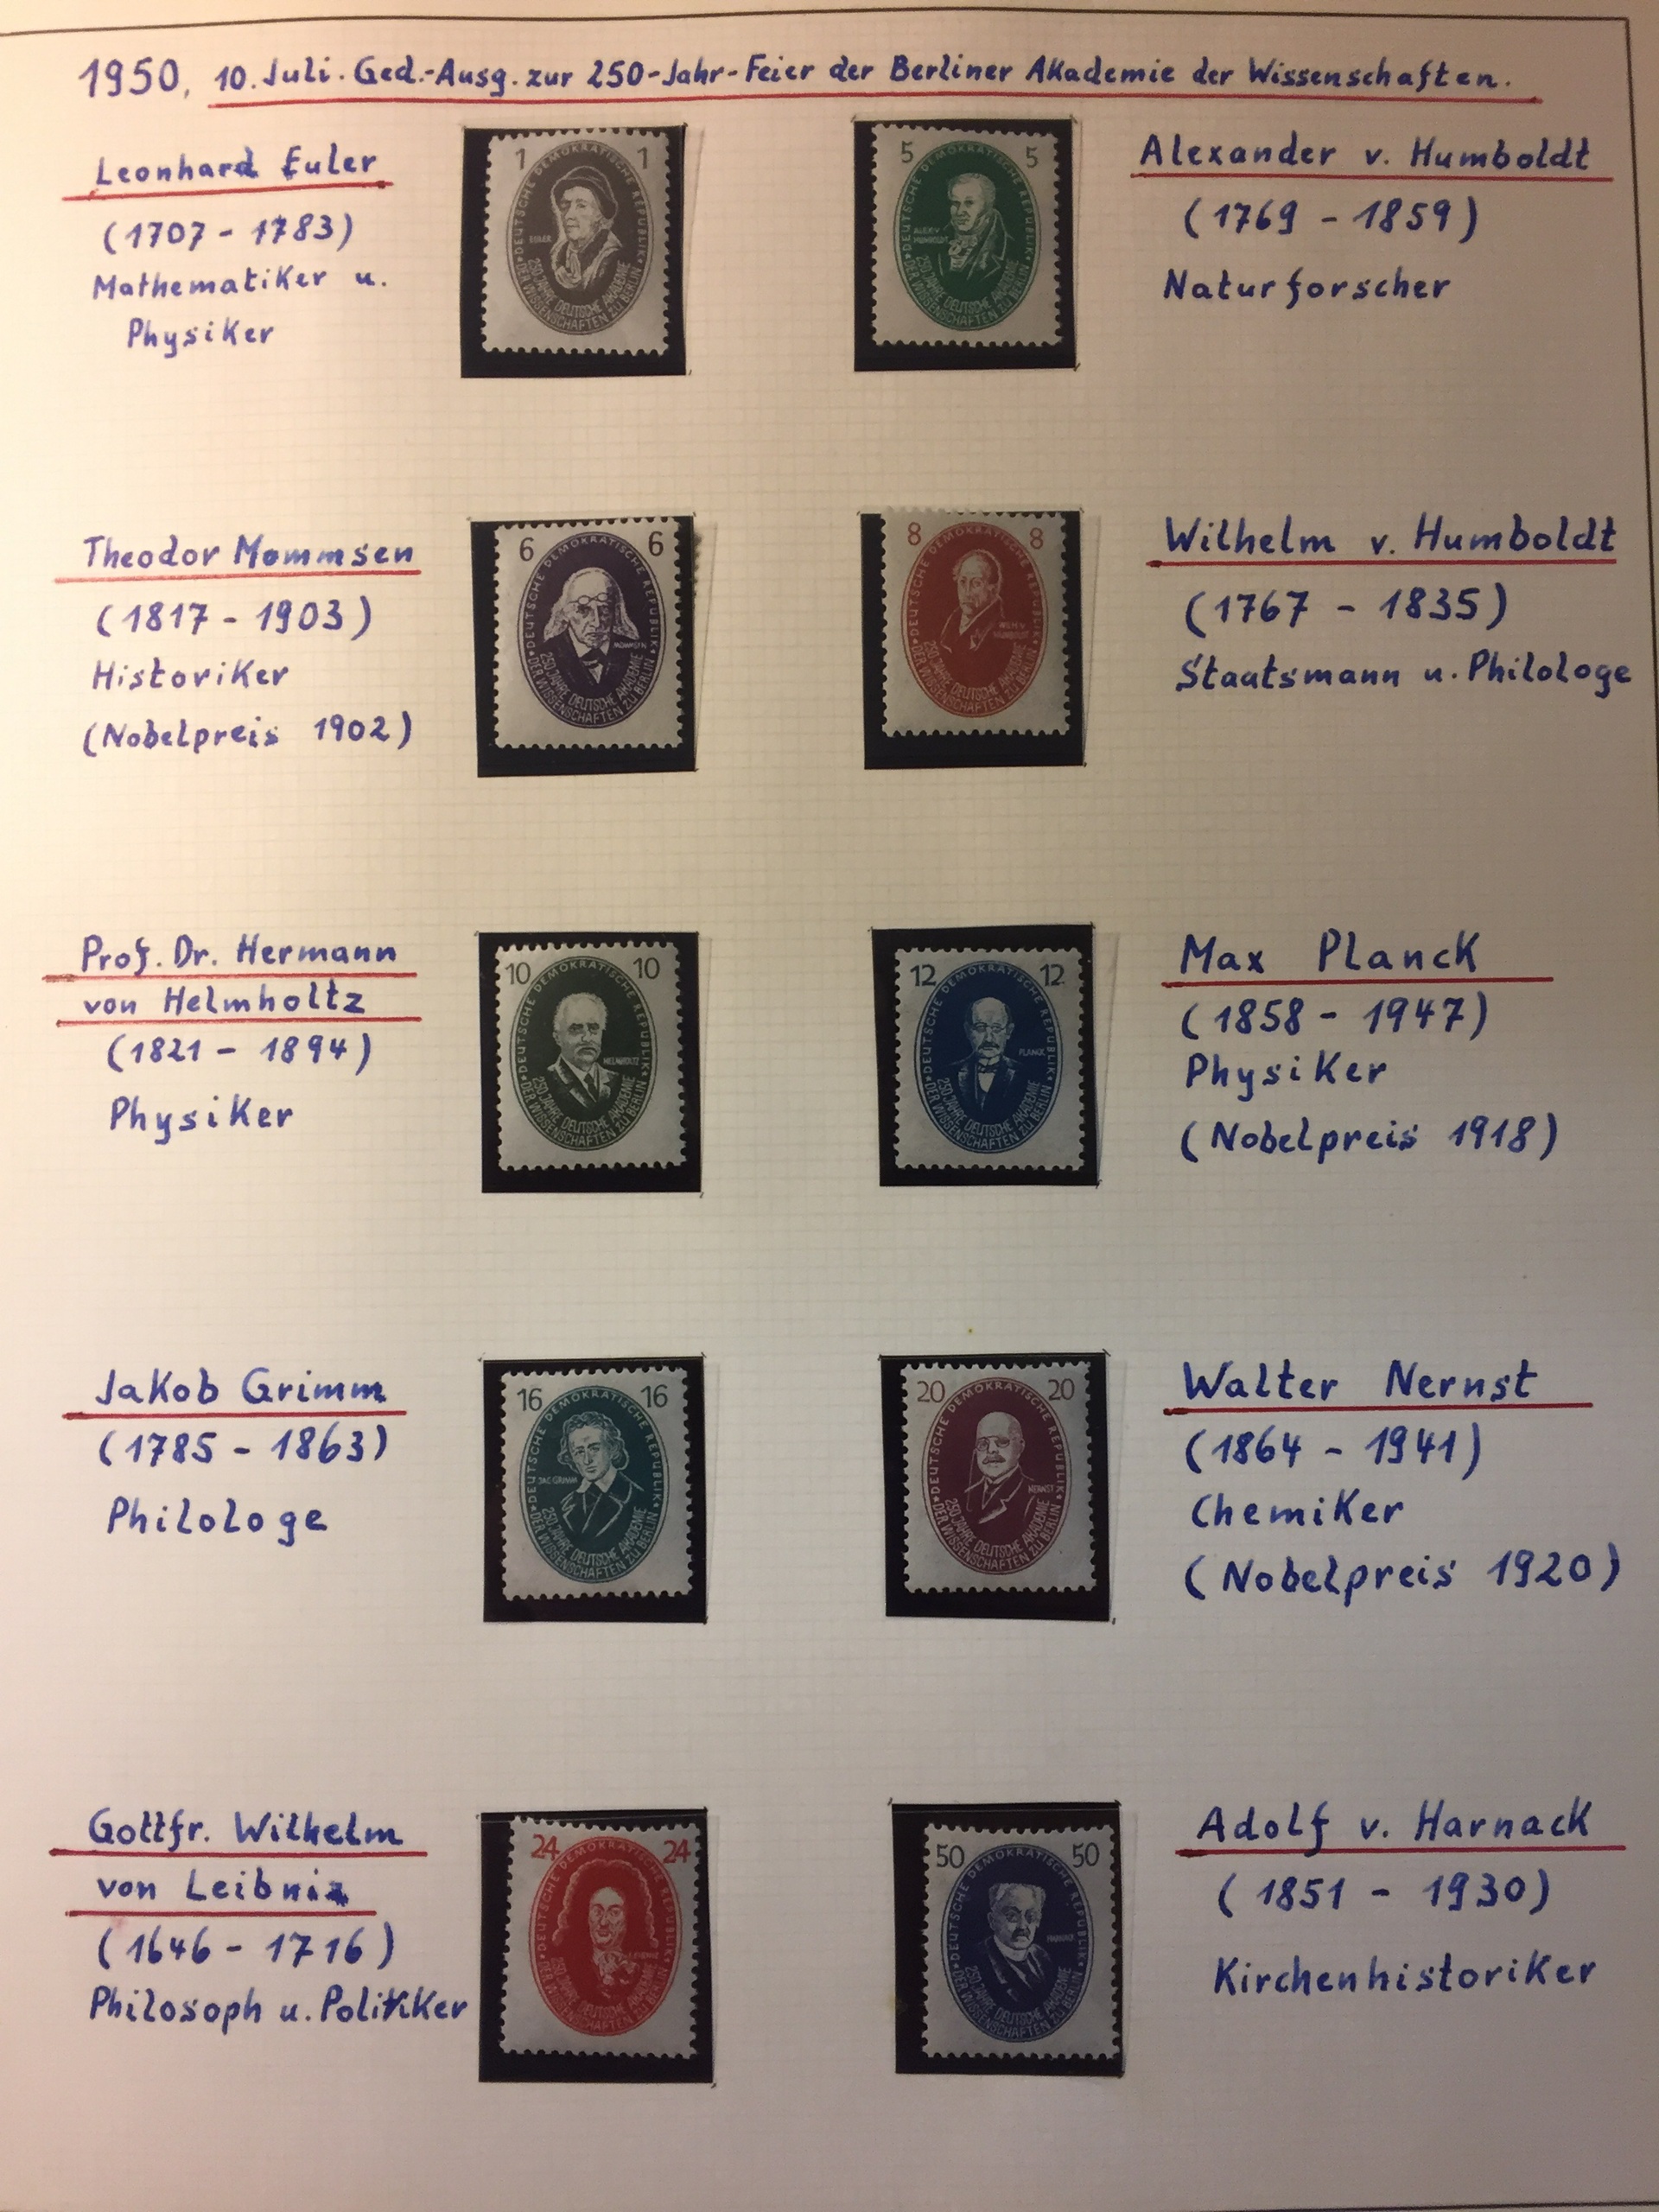 1950, 10. Juli. Ged.-Ausg. zur 250-Jahr-Feier der Berliner Akademie der Wissenschaften.
Leonhard Euler
(1707 - 1783)
Mathematiker u.
Physiker
1 1
DEUTSCHE DEMOKRATISCHE REPUBLIK
EULER
250 JAHRE DEUTSCHE AKADEMIE
DER WISSENSCHAFTEN ZU BERLIN
5 5
DEUTSCHE DEMOKRATISCHE REPUBLIK
ALEX. V.
HUMBOLDT
250 JAHRE DEUTSCHE AKADEMIE
DER WISSENSCHAFTEN ZU BERLIN
Alexander v. Humboldt
(1769 - 1859)
Naturforscher
Theodor Mommsen
(1817 - 1903)
Historiker
(Nobelpreis 1902)
6 6
DEUTSCHE DEMOKRATISCHE REPUBLIK
MOMMSEN
250 JAHRE DEUTSCHE AKADEMIE
DER WISSENSCHAFTEN ZU BERLIN
8 8
DEUTSCHE DEMOKRATISCHE REPUBLIK
WILH. V.
HUMBOLDT
250 JAHRE DEUTSCHE AKADEMIE
DER WISSENSCHAFTEN ZU BERLIN
Wilhelm v. Humboldt
(1767 - 1835)
Staatsmann u. Philologe
Prof. Dr. Hermann
von Helmholtz
(1821 - 1894)
Physiker
10 10
DEUTSCHE DEMOKRATISCHE REPUBLIK
HELMHOLTZ
250 JAHRE DEUTSCHE AKADEMIE
DER WISSENSCHAFTEN ZU BERLIN
12 12
DEUTSCHE DEMOKRATISCHE REPUBLIK
PLANCK
250 JAHRE DEUTSCHE AKADEMIE
DER WISSENSCHAFTEN ZU BERLIN
Max Planck
(1858 - 1947)
Physiker
(Nobelpreis 1918)
Jakob Grimm
(1785 - 1863)
Philologe
16 16
DEUTSCHE DEMOKRATISCHE REPUBLIK
JAC. GRIMM
250 JAHRE DEUTSCHE AKADEMIE
DER WISSENSCHAFTEN ZU BERLIN
20 20
DEUTSCHE DEMOKRATISCHE REPUBLIK
NERNST
250 JAHRE DEUTSCHE AKADEMIE
DER WISSENSCHAFTEN ZU BERLIN
Walter Nernst
(1864 - 1941)
Chemiker
(Nobelpreis 1920)
Gottfr. Wilhelm
von Leibniz
(1646 - 1716)
Philosoph u. Politiker
24 24
DEUTSCHE DEMOKRATISCHE REPUBLIK
250 JAHRE DEUTSCHE AKADEMIE
DER WISSENSCHAFTEN ZU BERLIN
50 50
DEUTSCHE DEMOKRATISCHE REPUBLIK
HARNACK
250 JAHRE DEUTSCHE AKADEMIE
DER WISSENSCHAFTEN ZU BERLIN
Adolf v. Harnack
(1851 - 1930)
Kirchenhistoriker